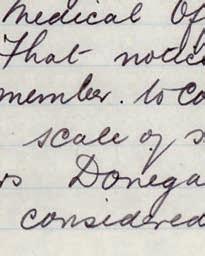 Medical Of
That notic
member. to Co
scale of
rs Donega
considered